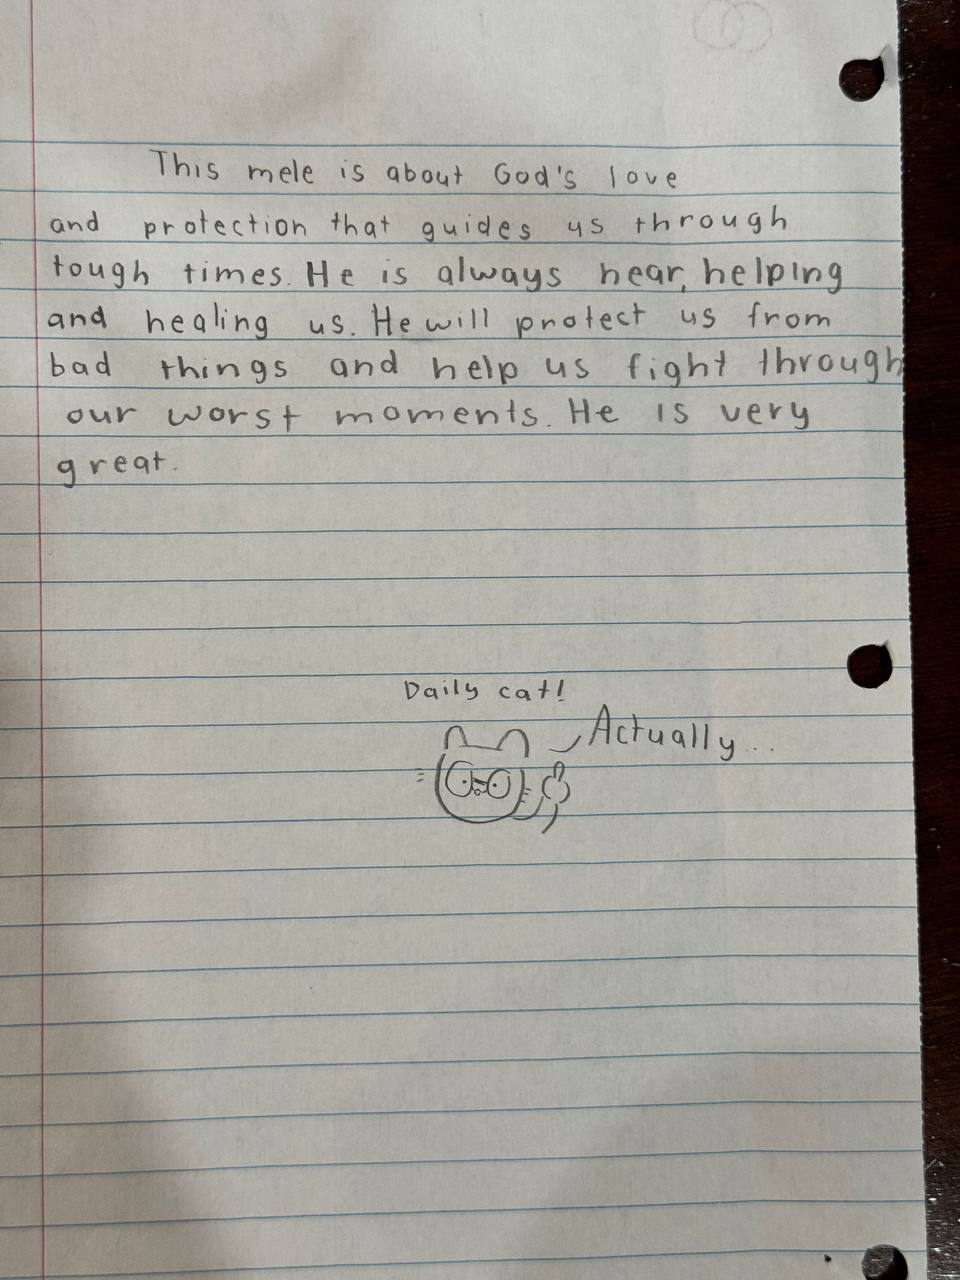 This mele is about God's love
and protection that guides us through
tough times. He is always near, helping
and healing us. He will protect us from
bad things and help us fight through
our worst moments. He is very
great.
Daily cat!
Actually...